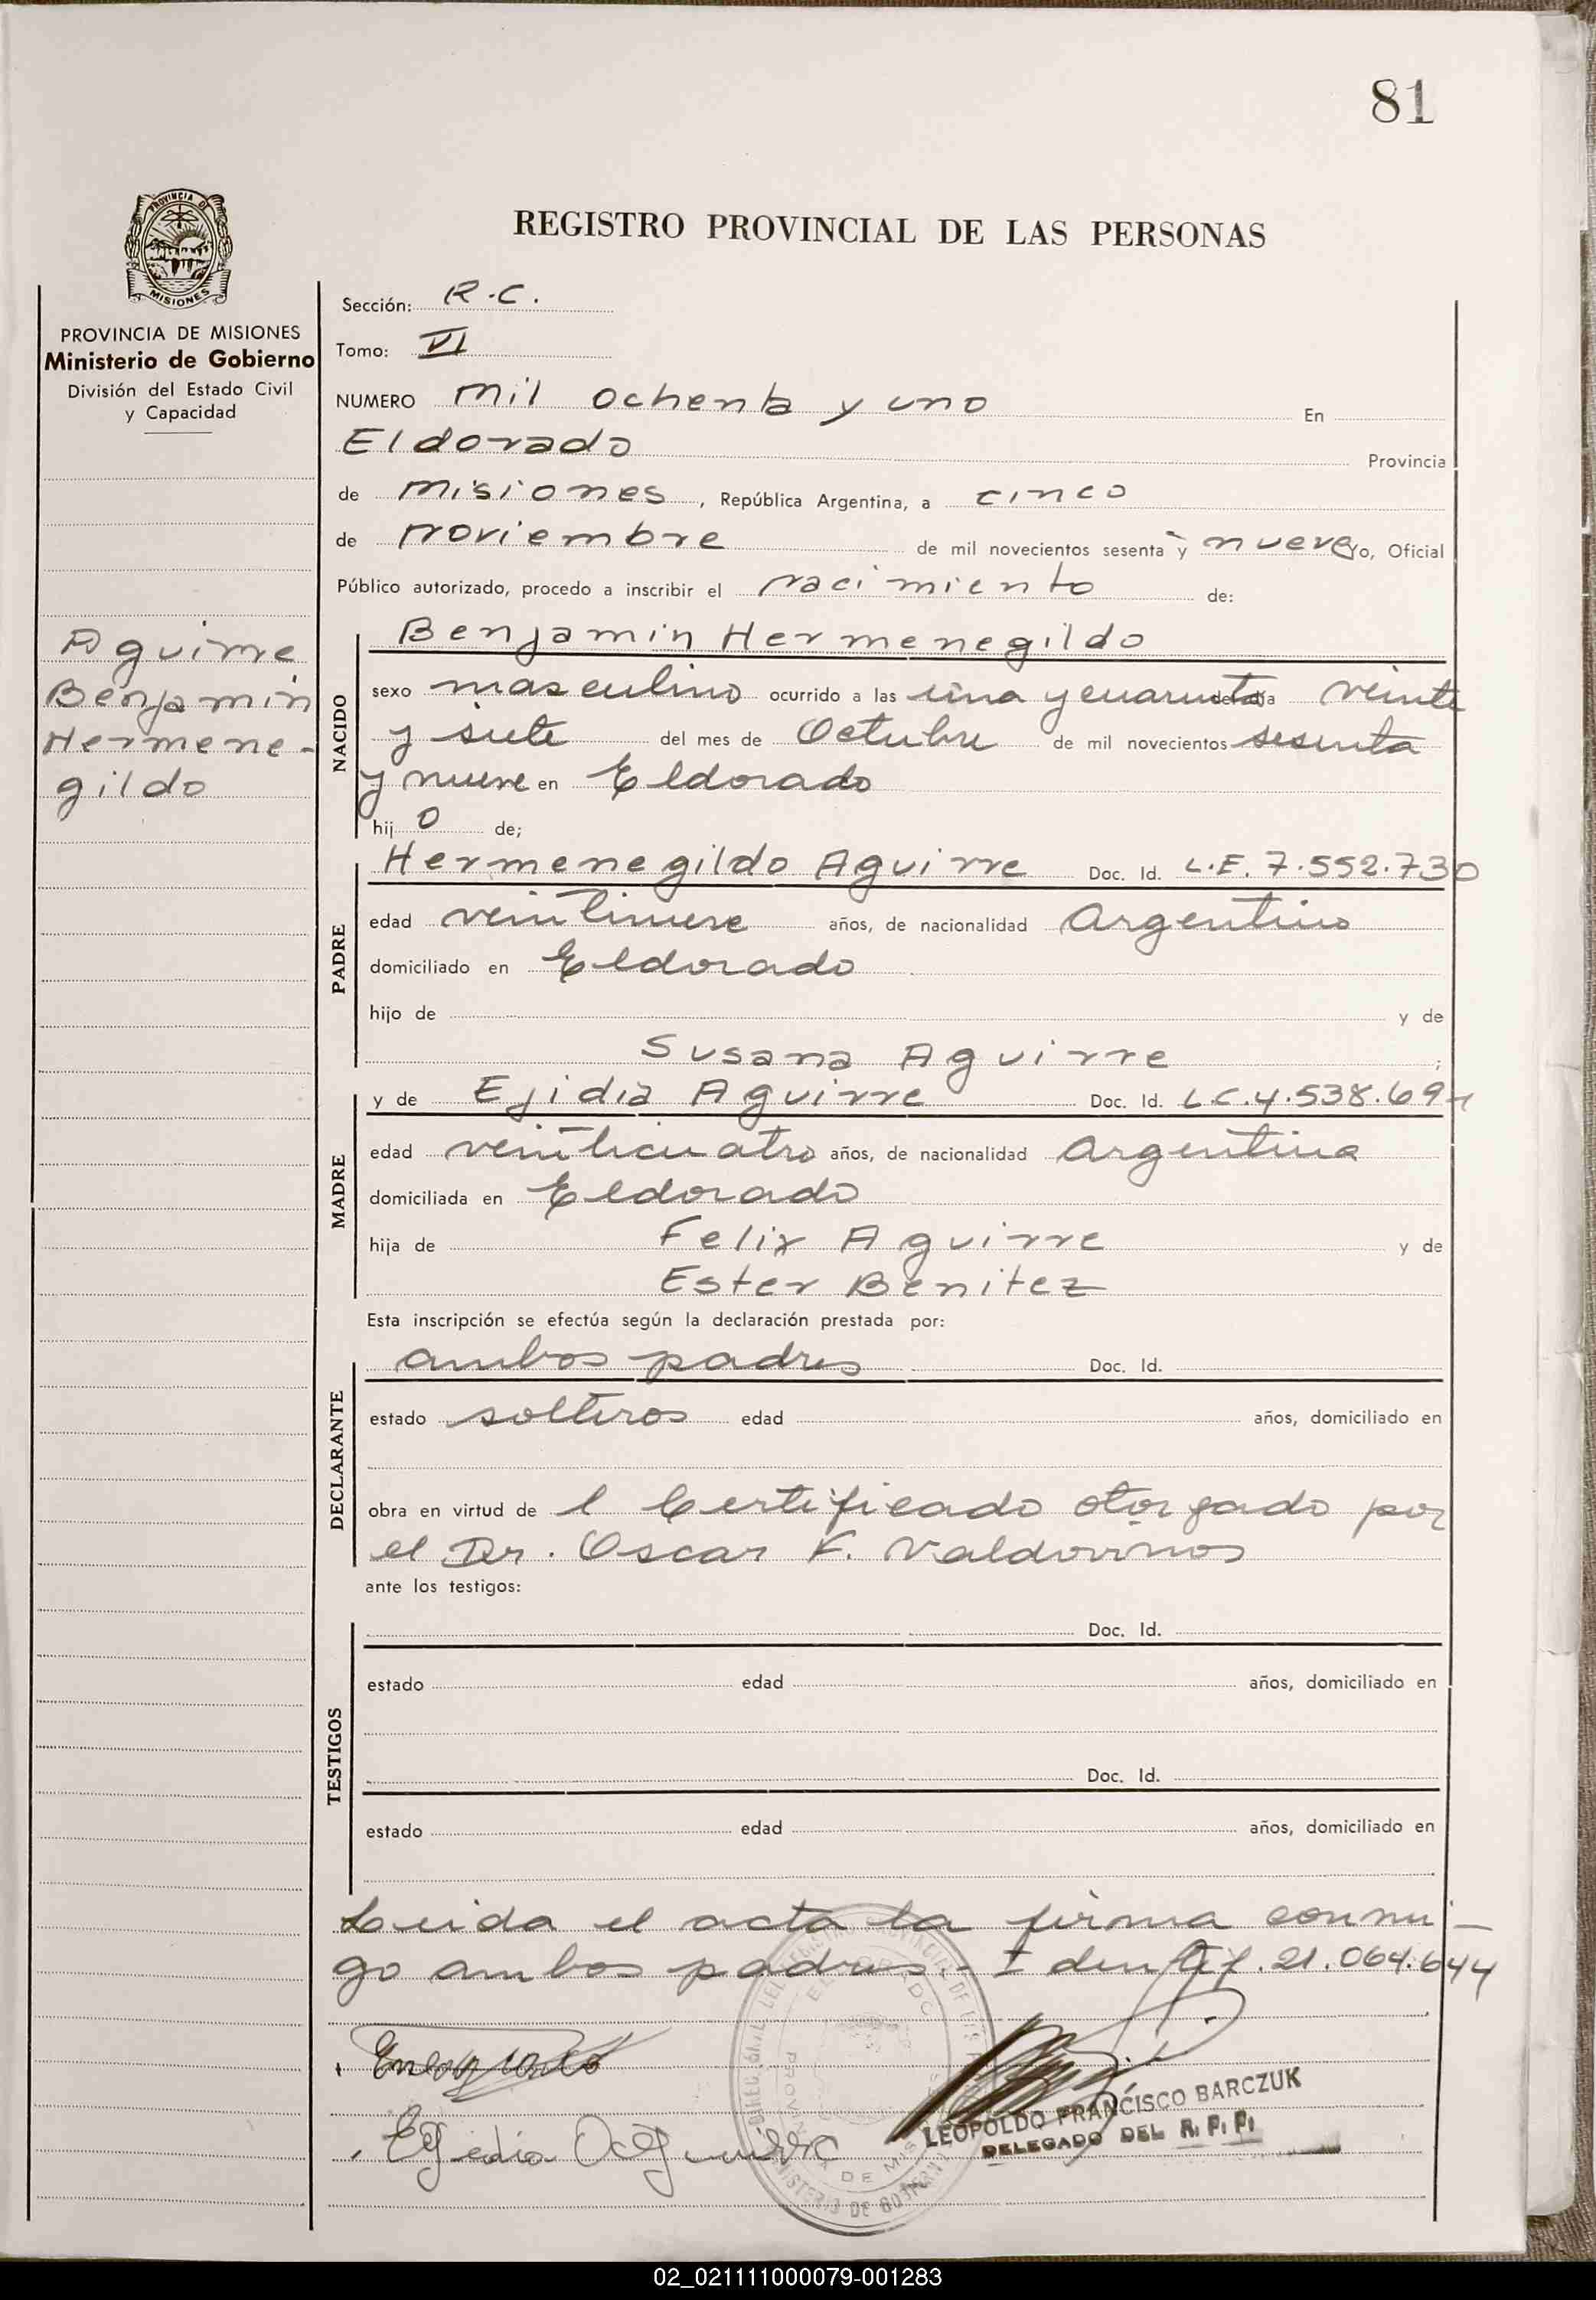 81
PROVINCIA DE
MISIONES
PROVINCIA DE MISIONES
Ministerio de Gobierno
División del Estado Civil
y Capacidad
Aguirre
Benjamin
Hermene-
gildo
REGISTRO PROVINCIAL DE LAS PERSONAS
Sección: R.C.
Tomo: VI
NUMERO mil ochenta y uno En
Eldorado Provincia
de misiones, República Argentina, a cinco
de noviembre de mil novecientos sesenta y nueve yo, Oficial
Público autorizado, procedo a inscribir el nacimiento de:
NACIDO
Benjamin Hermenegildo
sexo masculino ocurrido a las una y cuarenta del día veinte
y siete del mes de Octubre de mil novecientos sesenta
y nueve en Eldorado
hij o de;
PADRE
Hermenegildo Aguirre Doc. Id. L.E. 7.552.730
edad veintinueve años, de nacionalidad Argentino
domiciliado en Eldorado
hijo de y de
Susana Aguirre ;
MADRE
y de Ejidia Aguirre Doc. Id. L.C. 4.538.69
edad veinticuatro años, de nacionalidad Argentina
domiciliada en Eldorado
hija de Felix Aguirre y de
Ester Benitez
Esta inscripción se efectúa según la declaración prestada por:
DECLARANTE
ambos padres Doc. Id.
estado solteros edad años, domiciliado en
obra en virtud de l Certificado otorgado por
el Dr. Oscar F. Valdovinos
ante los testigos:
TESTIGOS
Doc. Id.
estado edad años, domiciliado en
Doc. Id.
estado edad años, domiciliado en
Leida el acta la firma conmi-
go ambos padres.- Identif. 21.064.644
Egedia Aguirre
LEOPOLDO FRANCISCO BARCZUK
DELEGADO DEL R. P. P.
02_021111000079-001283